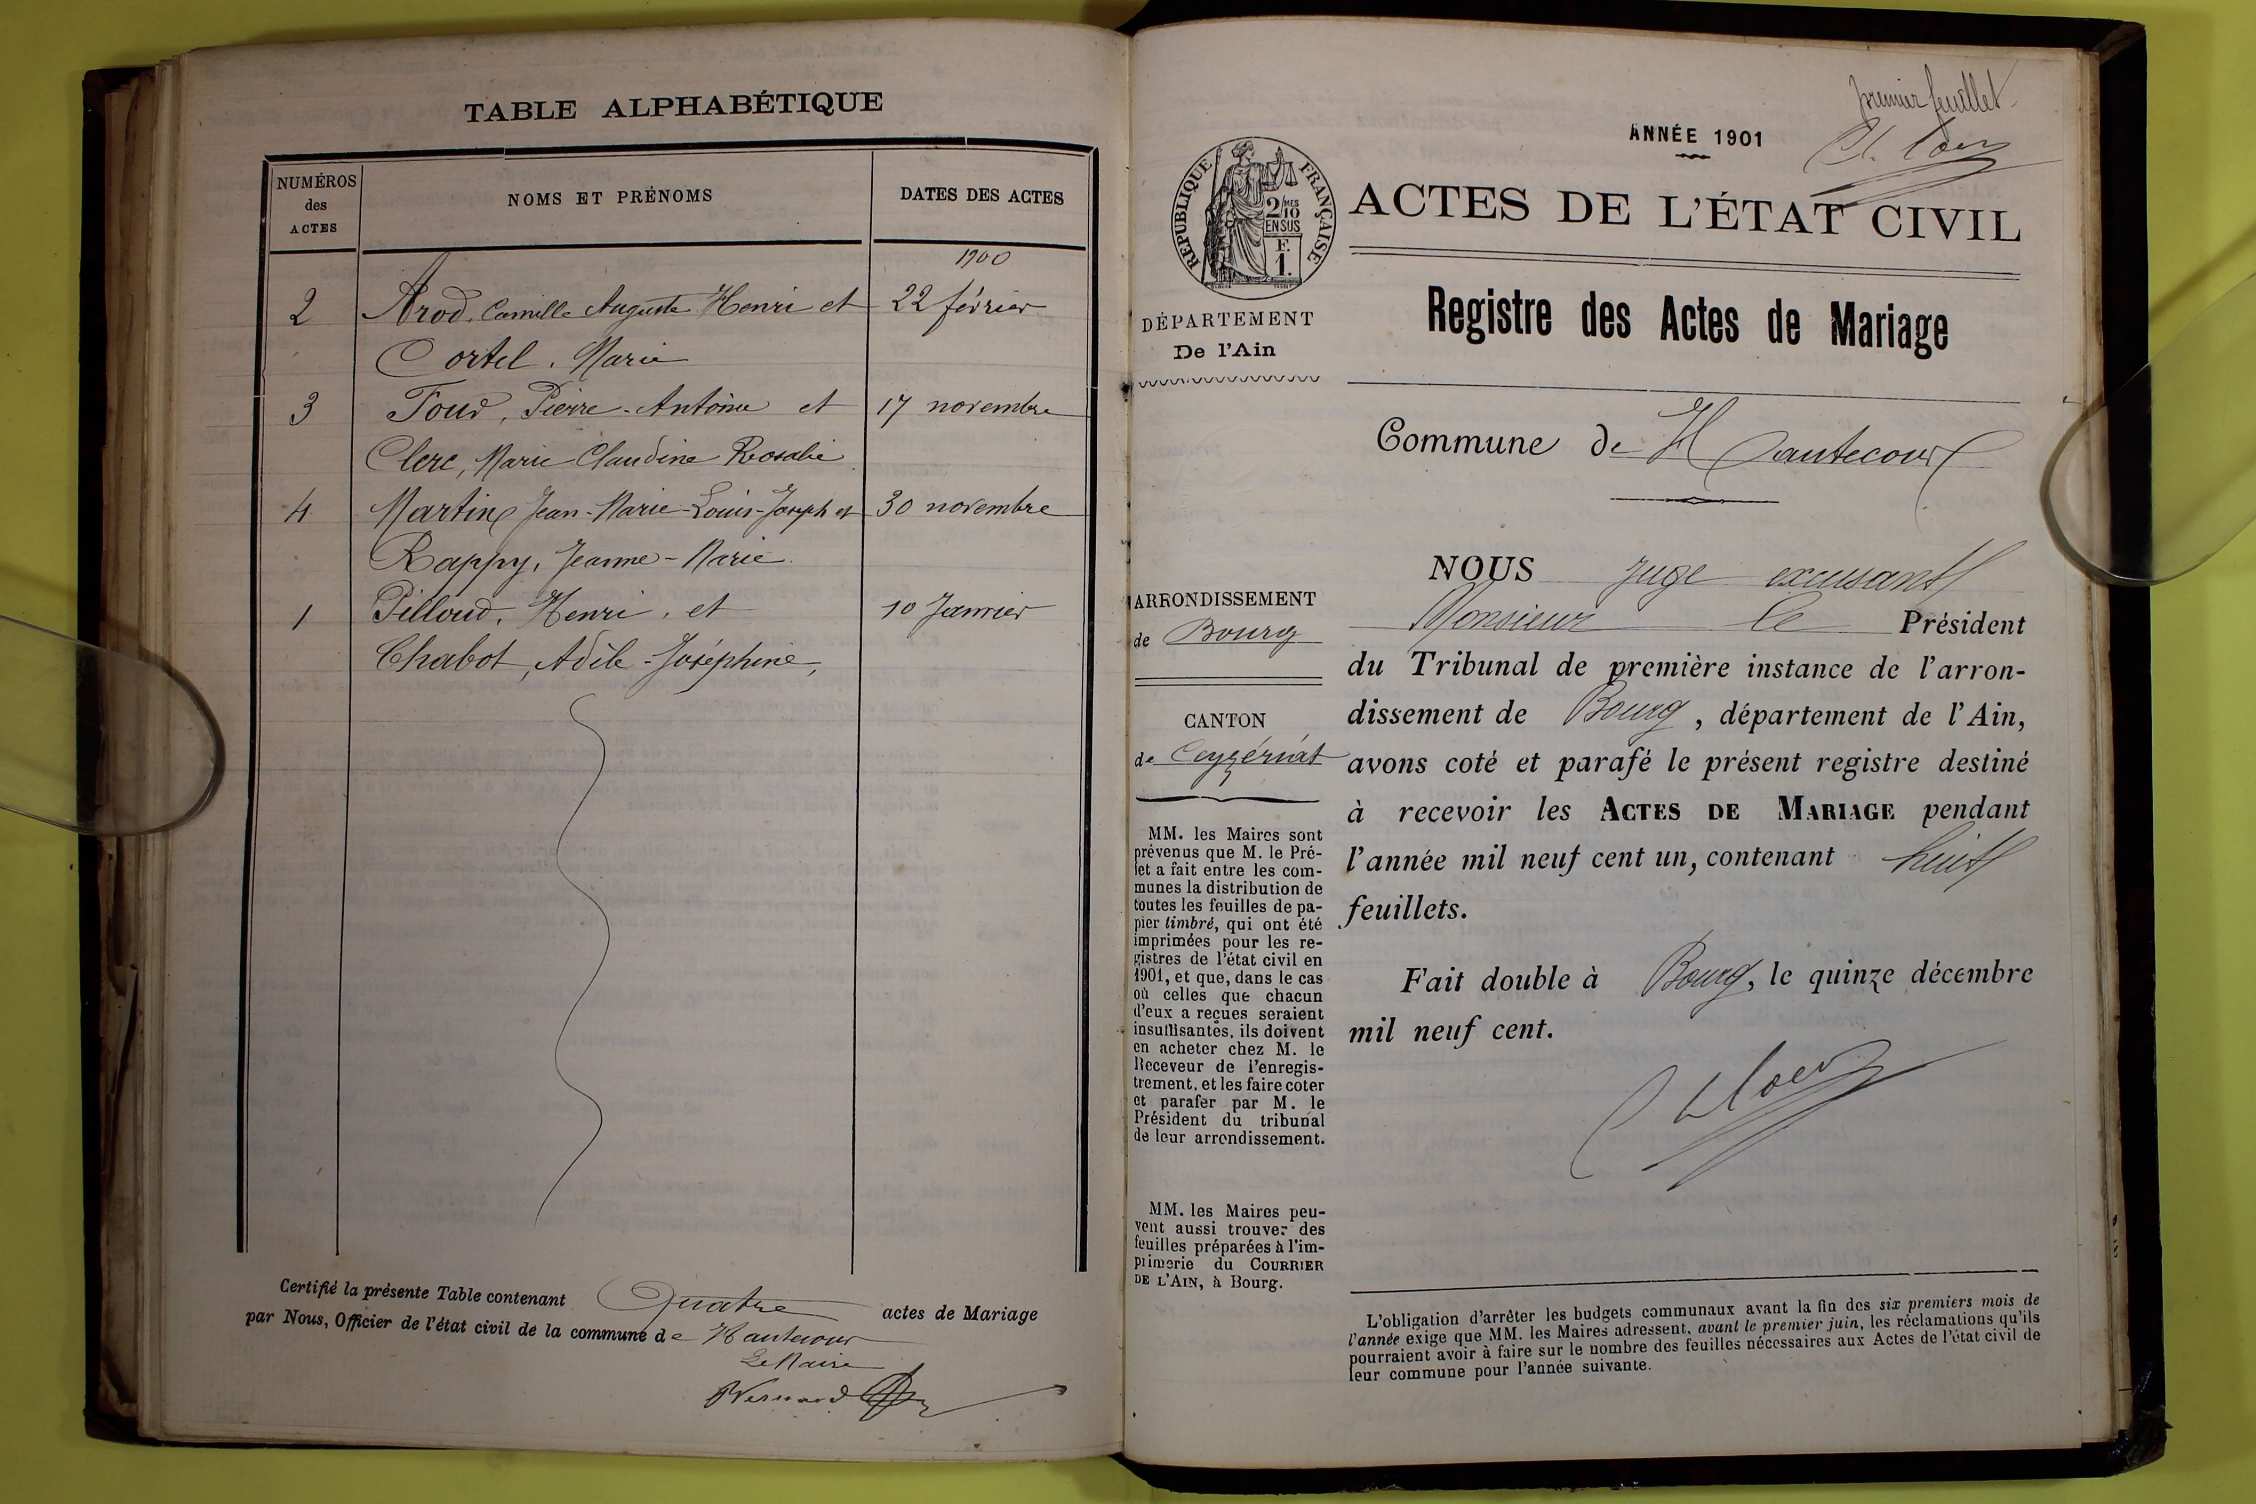 TABLE ALPHABÉTIQUE
NUMÉROS
des
ACTES
NOMS ET PRÉNOMS
DATES DES ACTES
1900
2 Arod, Camille Auguste Henri et 22 février
Cortel, Marie
3 Foud, Pierre-Antoine et 17 novembre
Clerc, Marie Claudine Rosalie
4 Martin Jean-Marie-Louis-Joseph et 30 novembre
Rappy, Jeanne-Marie
1 Pilloud, Henri, et 10 Janvier
Chabot, Adèle-Joséphine,
Certifié la présente Table contenant Quatre actes de Mariage
par Nous, Officier de l'état civil de la commune de Hautecour
Le Maire
premier feuillet
ANNÉE 1901
RÉPUBLIQUE FRANÇAISE
2/10 MES
EN SUS
F.
1.
ACTES DE L'ÉTAT CIVIL
Registre des Actes de Mariage
DÉPARTEMENT
De l'Ain
Commune de Hautecour
ARRONDISSEMENT
de Bourg
CANTON
de Ceyzériat
MM. les Maires sont
prévenus que M. le Pré-
fet a fait entre les com-
munes la distribution de
toutes les feuilles de pa-
pier timbré, qui ont été
imprimées pour les re-
gistres de l'état civil en
1901, et que, dans le cas
où celles que chacun
d'eux a reçues seraient
insuffisantes, ils doivent
en acheter chez M. le
Receveur de l'enregis-
trement, et les faire coter
et parafer par M. le
Président du tribunal
de leur arrondissement.
MM. les Maires peu-
vent aussi trouver des
feuilles préparées à l'im-
primerie du COURRIER
DE L'AIN, à Bourg.
NOUS juge excusant
Monsieur le Président
du Tribunal de première instance de l'arron-
dissement de Bourg, département de l'Ain,
avons coté et parafé le présent registre destiné
à recevoir les ACTES DE MARIAGE pendant
l'année mil neuf cent un, contenant huit
feuillets.
Fait double à Bourg, le quinze décembre
mil neuf cent.
L'obligation d'arrêter les budgets communaux avant la fin des six premiers mois de
l'année exige que MM. les Maires adressent, avant le premier juin, les réclamations qu'ils
pourraient avoir à faire sur le nombre des feuilles nécessaires aux Actes de l'état civil de
leur commune pour l'année suivante.